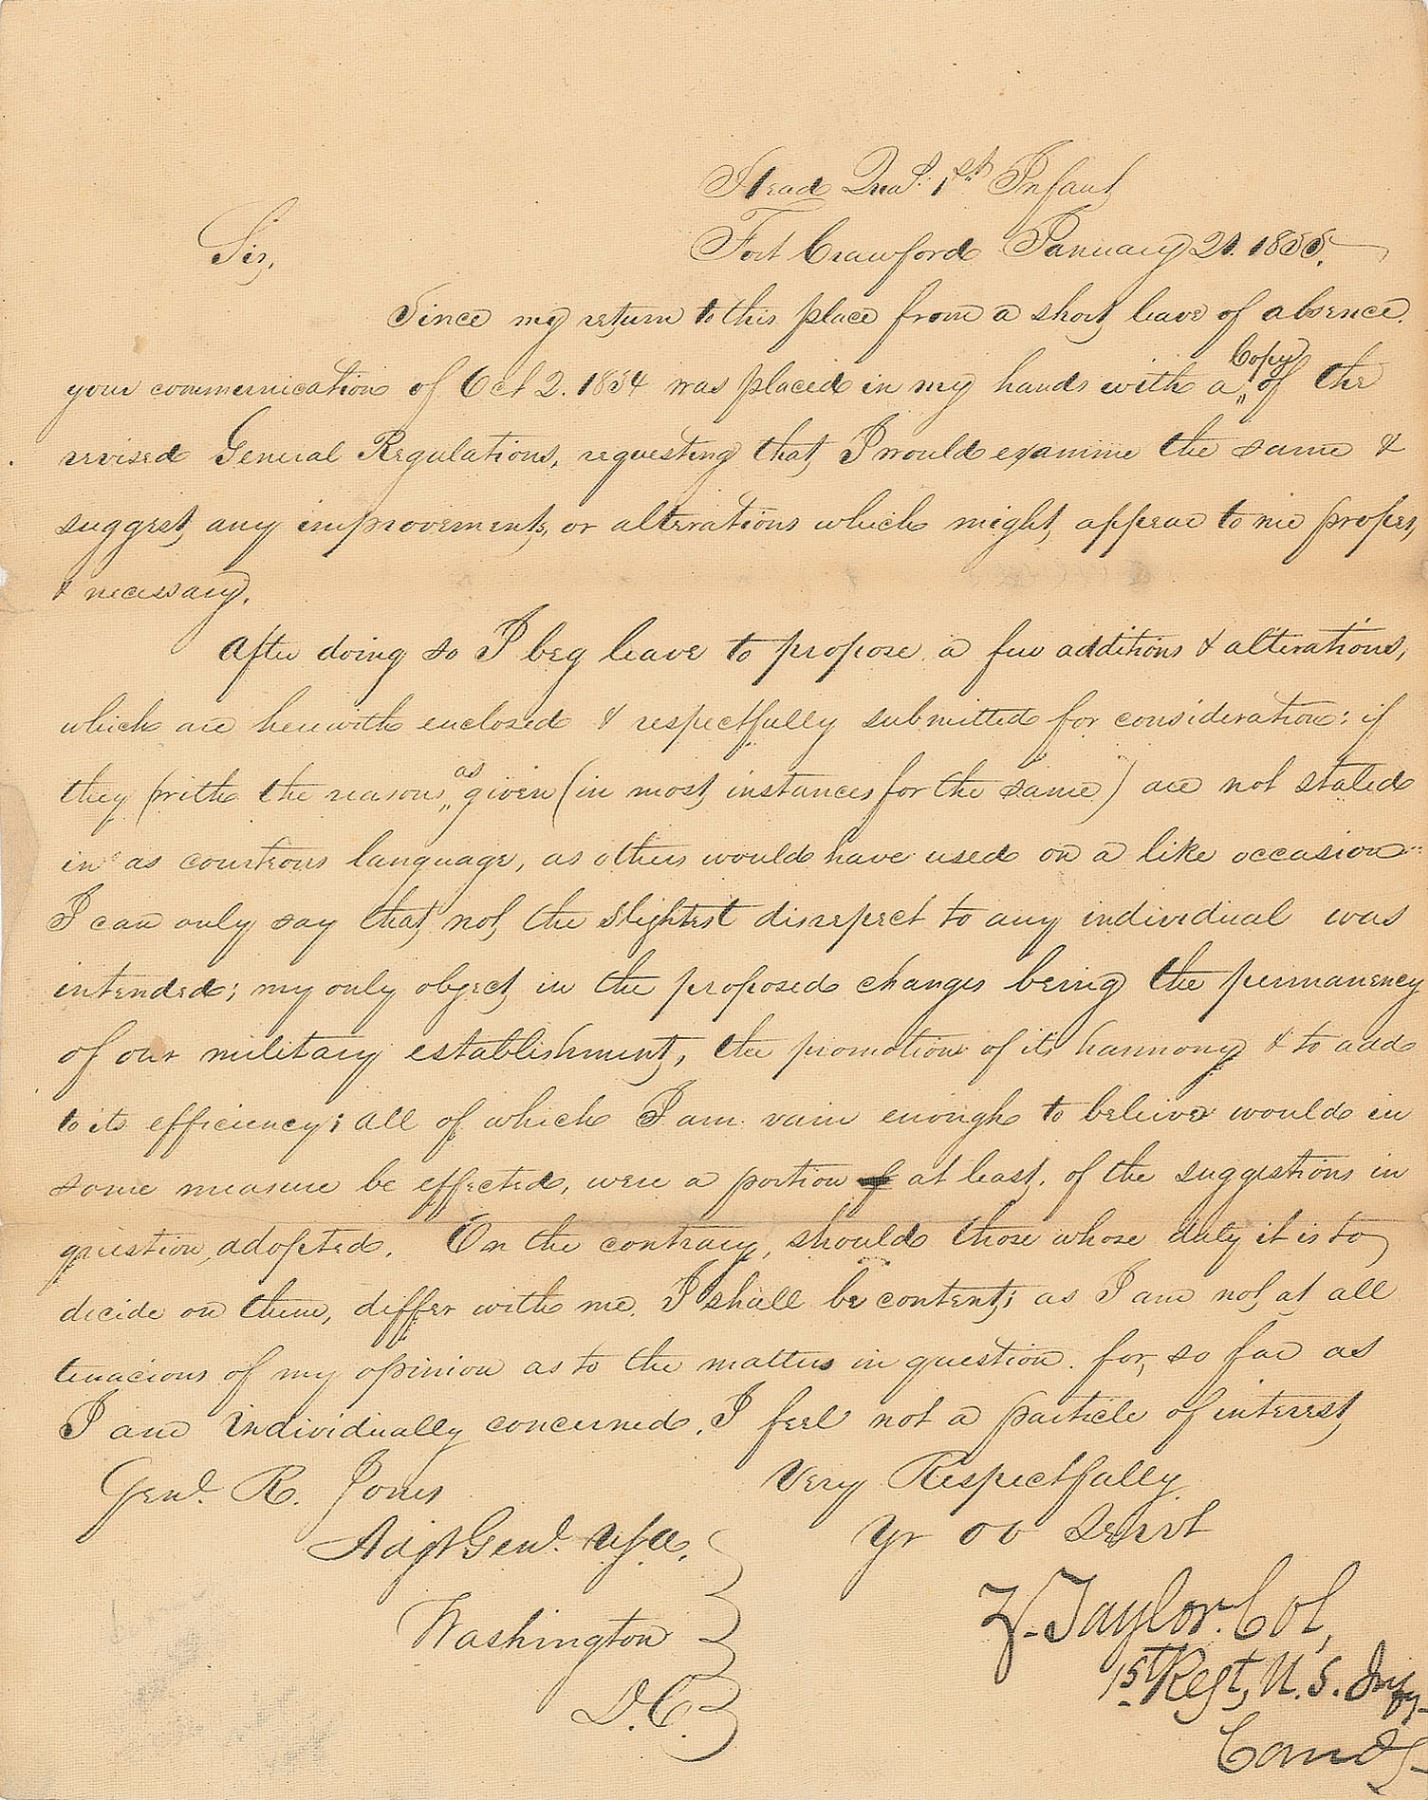 Head Qrs. 1st Infant
Fort Crawford January 21. 1835.
Sir,
Since my return to this place from a short leave of absence.
your communication of Oct 2. 1834 was placed in my hands with a Copy of the
revised General Regulations, requesting that I would examine the same &
suggest any improvements, or alterations which might, appear to me proper,
& necessary.
After doing so I beg leave to propose a few additions & alterations,
which are herewith enclosed & respectfully submitted for consideration: if
they (with the reasons as given (in most instances for the same) are not stated
in as courteous language, as others would have used on a like occasion
I can only say that not the slightest disrepect to any individual was
intended; my only object in the proposed changes being the permanency
of our military establishment, the promotion of its harmony & to add
to its efficiency; all of which I am vain enough to believe would in
some measure be effected, were a portion at least. of the suggestions in
question, adopted. On the contrary, should those whose duty it is to
decide on them, differ with me. I shall be content; as I am not at all
tenacious of my opinion as to the matters in question. for, so far as
I am individually concerned. I feel not a particle of interest,
Genl. R. Jones
Very Respectfully
Adjt Genl. U.S.A.
Yr ob Servt
Washington
D.C.
Z. Taylor. Col,
1st Regt, U.S. Infy-
Comdg-